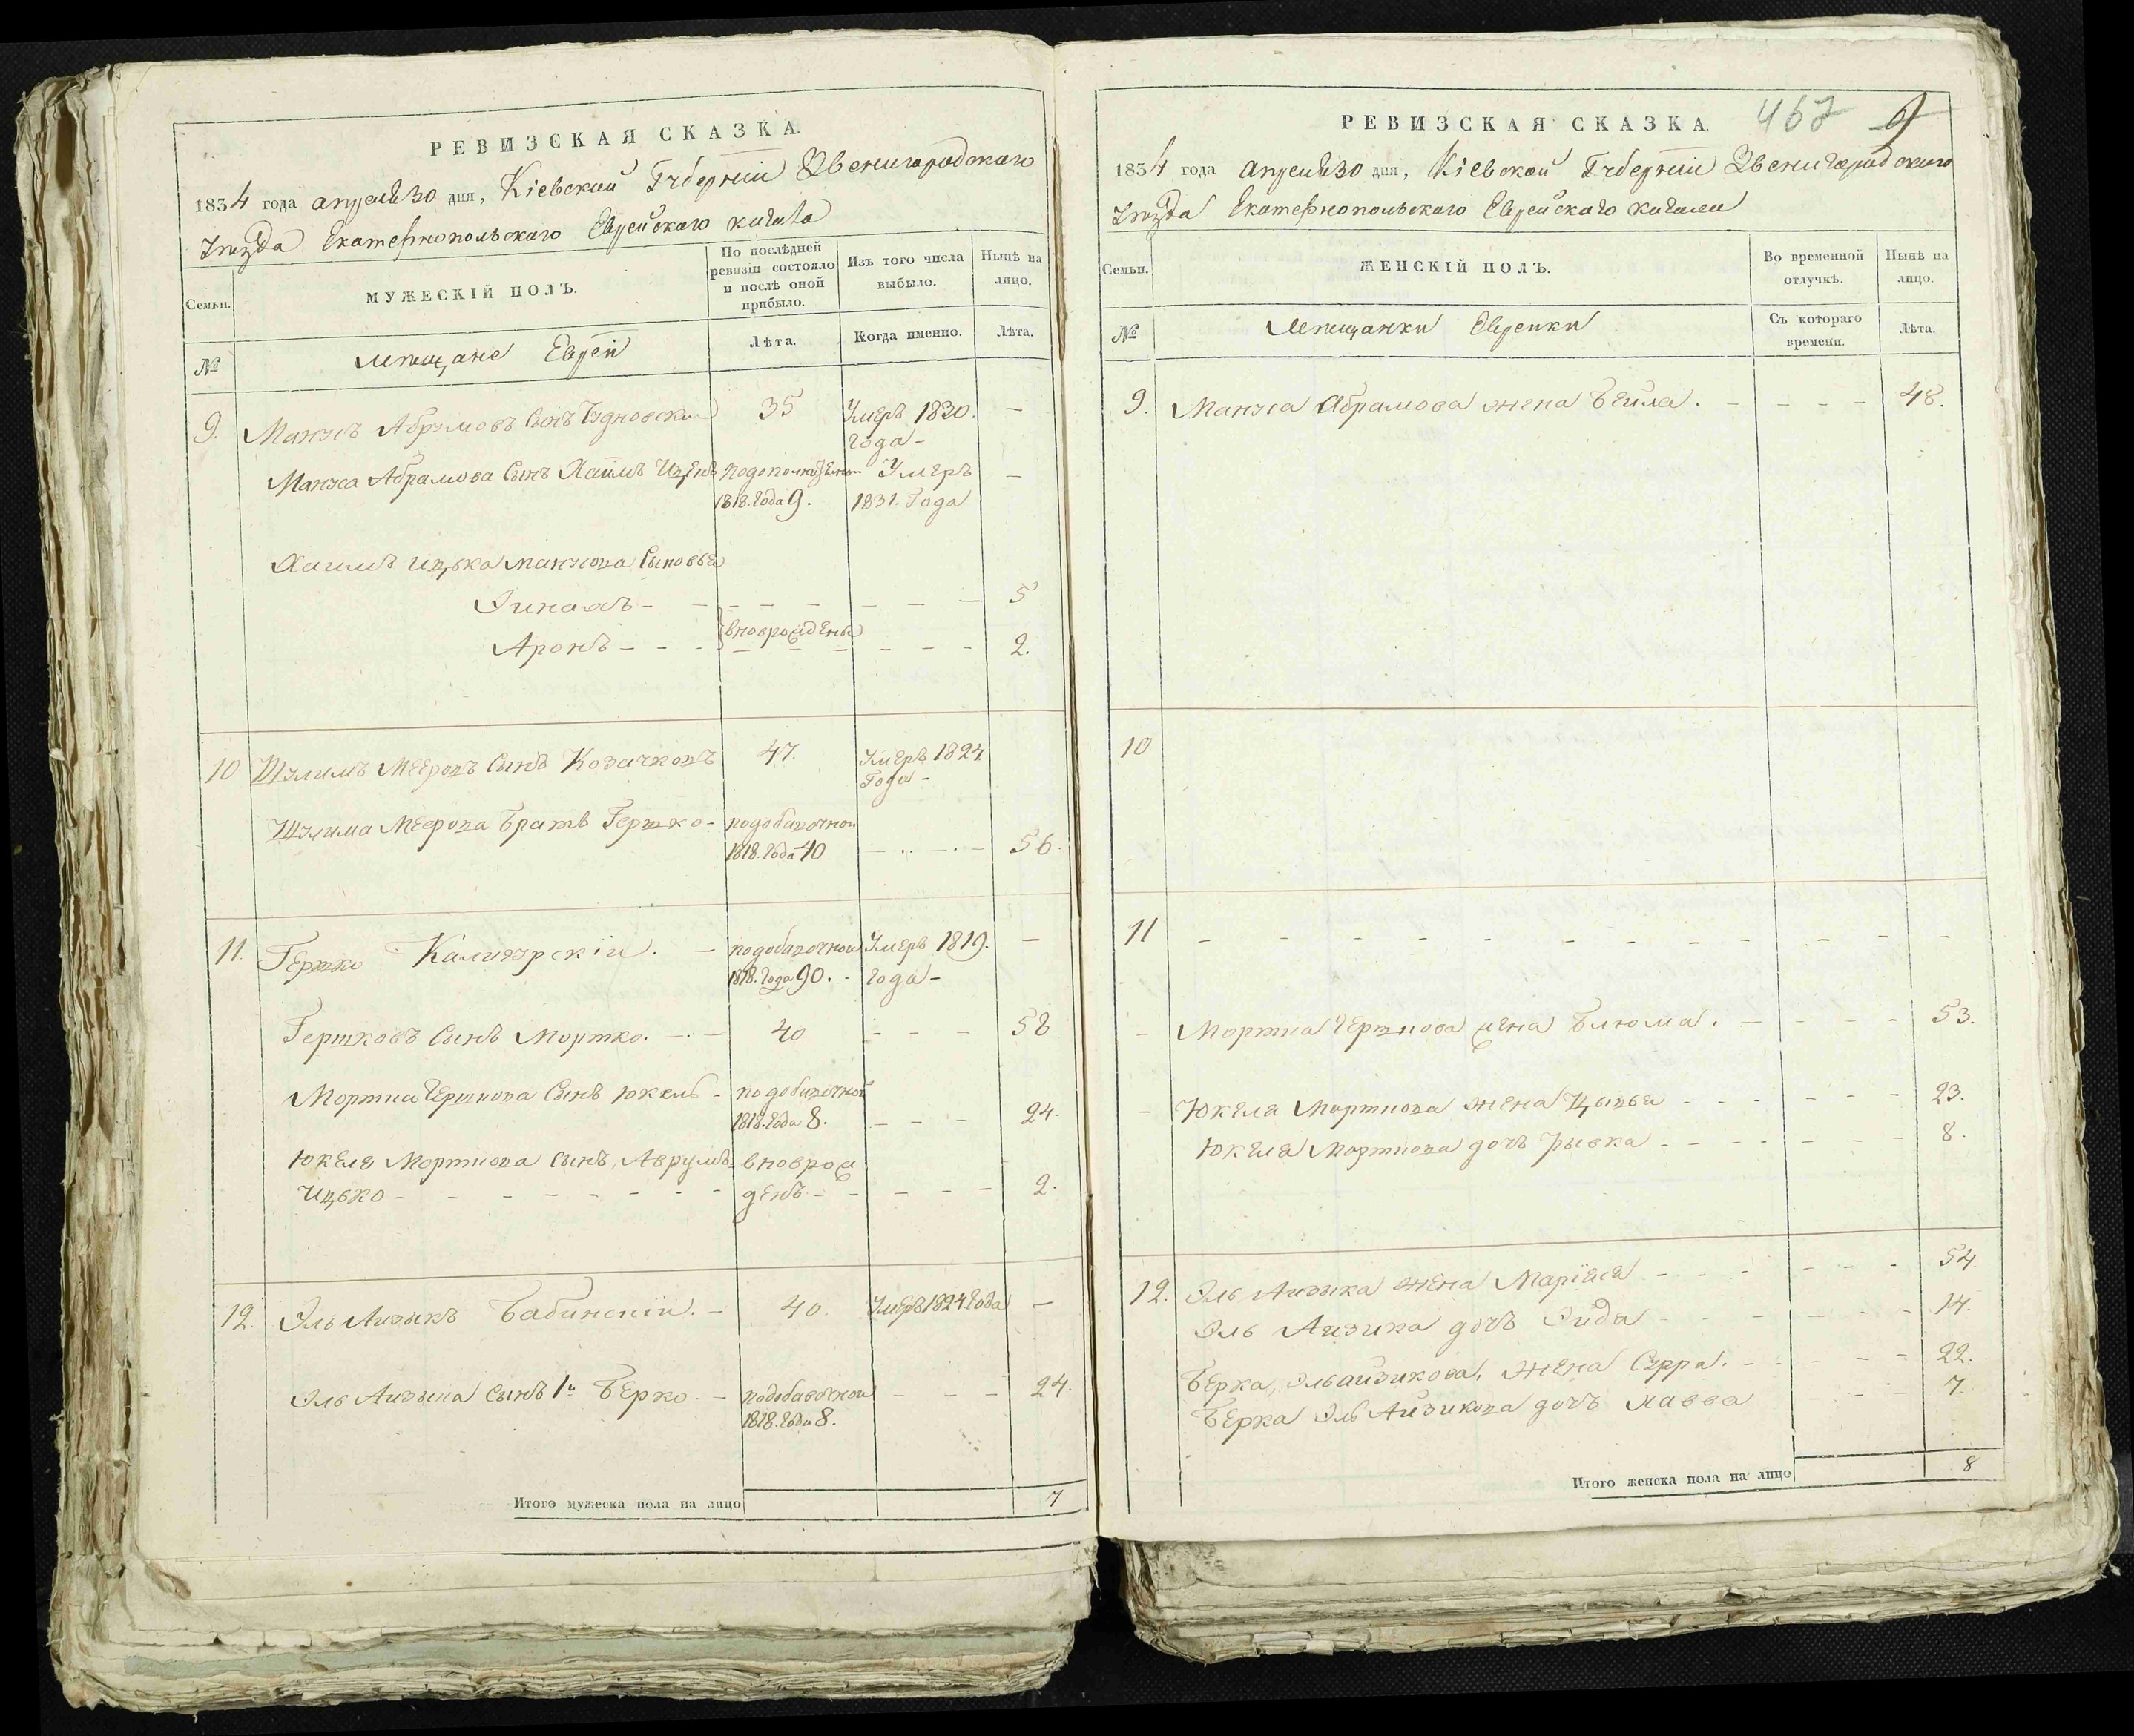 РЕВИЗСКАЯ СКАЗКА.
1834 года апреля 30 дня, Кіевской Губерніи Звенигородскаго
Уѣзда Екатеринопольскаго Еврейскаго кагала
Семьи.
МУЖЕСКІЙ ПОЛЪ.
По послѣдней ревизіи состояло и послѣ оной прибыло.
Изъ того числа выбыло.
Нынѣ на лицо.
№
мѣщане Евреи
Лѣта.
Когда именно.
Лѣта.
9. Манусъ Абрамовъ Сынъ 35 Умеръ 1830. —
года —
Мануса Абрамова Сынъ Хаимъ Ицько Умеръ —
1818. года 9. 1831. Года
Хаимъ Ицька Манусова Сыновья
— — — — — — — 5
вноврождены
Аронъ — — — — — — — — — 2.
10 Шулимъ Мееровъ Сынъ Козачковъ 47. Умеръ 1824
Года —
Шулима Меерова Братъ Гершко — подобавочной
1818. года 40 — .. — . — 56.
11. Гершко . — подобавочной Умеръ 1819. —
1818. года 90. — года —
Гершковъ Сынъ Мортко. — . — 40 — — — 58
Мортка Гершкова Сынъ Юкель — подобавочной
1818. года 8. — — — 24.
ЮкеляМорткова Сынъ, Аврумъ вноврож
Ицько — — — — — — — — денъ — — — — — 2.
12. Эль Айзыкъ Бабинскій. — 40. Умеръ 1824 года —
Эль Айзыка Сынъ 1й Берко. — подобавочной — — — 24.
1818. года 8.
Итого мужеска пола на лицо 7
РЕВИЗСКАЯ СКАЗКА. 467 9
1834 года апреля 30 дня, Кіевской Губерніи Звенигородскаго
Уѣзда Екатеринопольскаго Еврейскаго кагала
Семьи.
ЖЕНСКІЙ ПОЛЪ.
Во временной отлучкѣ.
Нынѣ на лицо.
№
Мѣщанки Еврейки
Съ котораго времени.
Лѣта.
9. Мануса Абрамова жена Бейла. — — — — 48.
10
11 — — — — — — — — — — — —
— Мортка Гершкова жена Блюма. — — — — 53.
— Юкеля Морткова жена Цывья — — — — — — 23.
Юкеля Морткова дочь Рывка — — — — — — — 8.
12. Эль Айзыка жена Маріяся — — — — — — 54.
Эль Айзика дочь Эйда — — — — — — 14.
Берка, Эльайзикова, жена Сурра. — — — — — 22.
Берка Эль Айзикова дочь Хавва — — — 7.
Итого женска пола на лицо 8